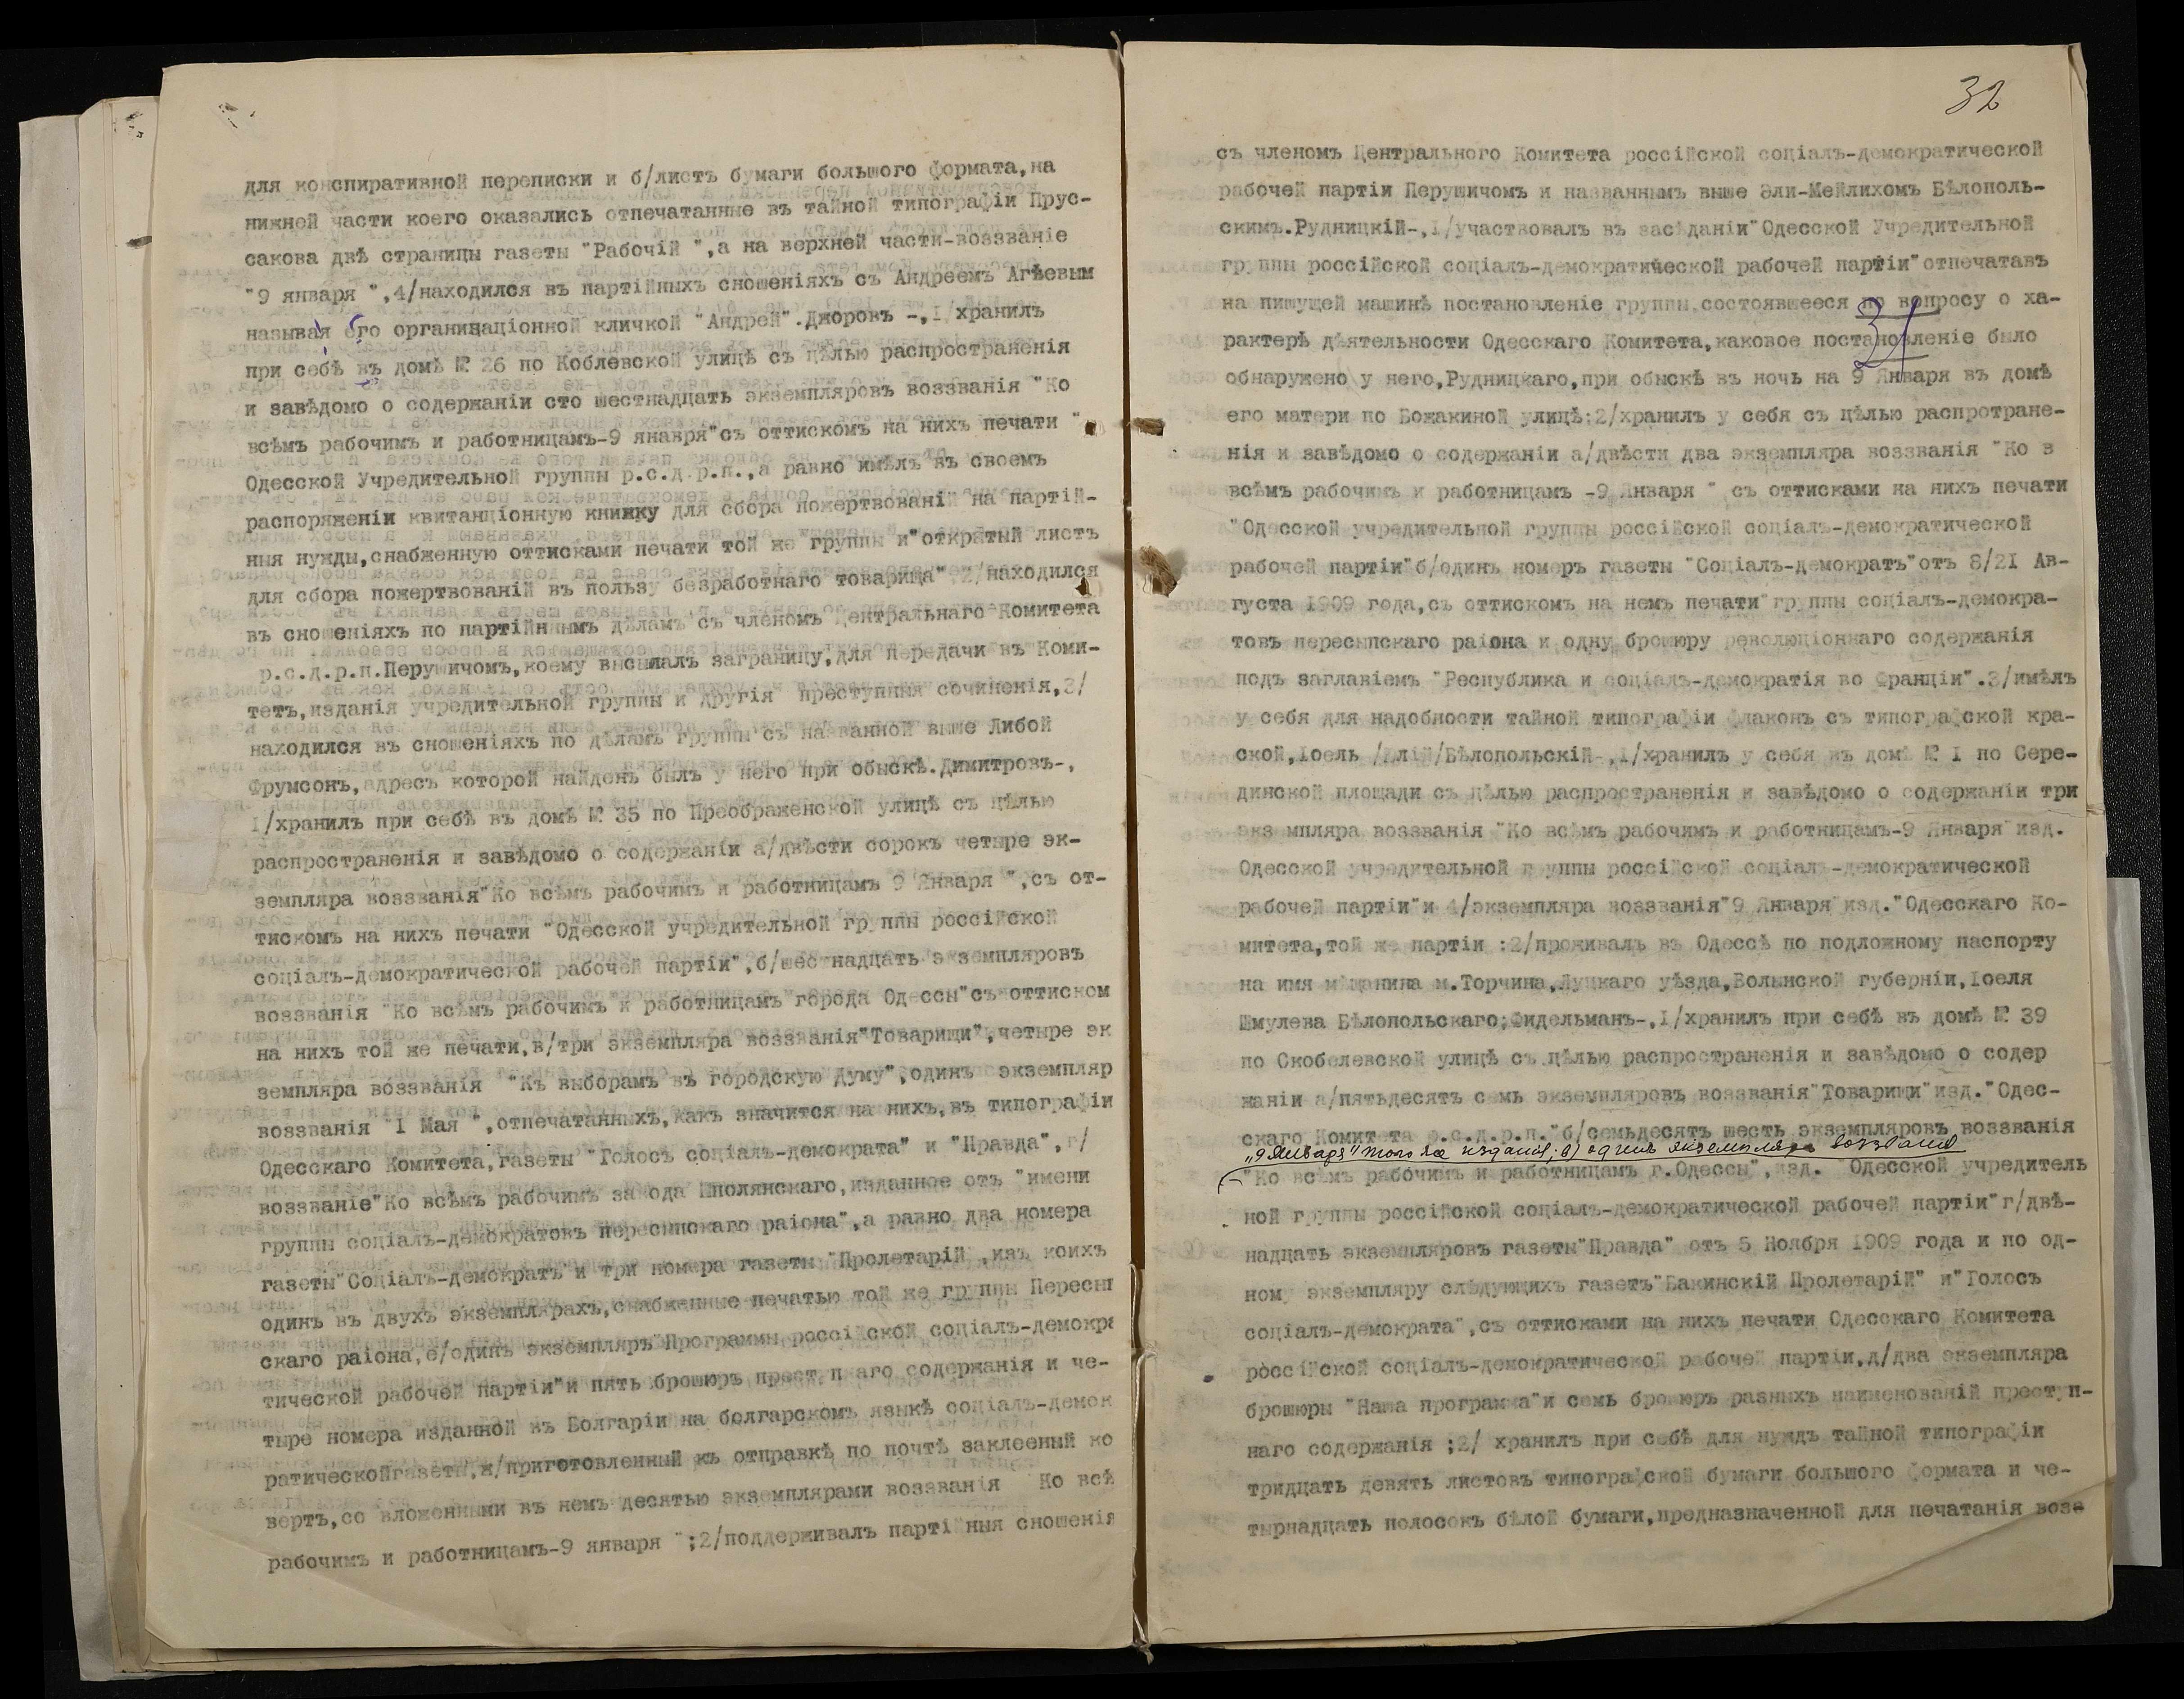 для конспиративной переписки и б/листъ бумаги большого формата,на
нижней части коего оказались отпечатанные въ тайной типографіи Прус-
сакова двѣ страницы газеты "Рабочій ",а на верхней части-воззваніе
"9 января ",4/находился въ партійныхъ сношеніяхъ съ Андреемъ Агѣевым
называя его организаціонной кличкой "Андрей".Джоровъ -,I/хранилъ
при себѣ въ домѣ № 26 по Коблевской улицѣ съ цѣлью распространенія
и завѣдомо о содержаніи сто шестнадцать экземпляровъ воззванія "Ко
всѣмъ рабочимъ и работницамъ-9 января"съ оттискомъ на нихъ печати "
Одесской Учредительной группы р.с.д.р.п.,а равно имѣлъ въ своемъ
распоряженіи квитанціонную книжку для сбора пожертвованій на партій-
ныя нужды,снабженную оттисками печати той же группы и"открытый листъ
для сбора пожертвованій въ пользу безработнаго товарища",2/находился
въ сношеніяхъ по партійнымъ дѣламъ съ членомъ Центральнаго Комитета
р.с.д.р.п.Перушичомъ,коему высылалъ заграницу,для передачи въ Коми-
тетъ,изданія учредительной группы и другія преступныя сочиненія,3/
находился въ сношеніяхъ по дѣламъ группы съ названной выше Либой
Фрумсонъ,адресъ которой найденъ былъ у него при обыскѣ.Димитровъ-,
I/хранилъ при себѣ въ домѣ № 35 по Преображенской улицѣ съ цѣлью
распространенія и завѣдомо о содержаніи а/двѣсти сорокъ четыре эк-
земпляра воззванія"Ко всѣмъ рабочимъ и работницамъ 9 Января ",съ от-
тискомъ на нихъ печати "Одесской учредительной группы россійской
соціалъ-демократической рабочей партіи",б/шестнадцать экземпляровъ
воззванія "Ко всѣмъ рабочимъ и работницамъ города Одессы"съ оттиском
на нихъ той же печати,в/три экземпляра воззванія"Товарищи",четыре эк
земпляра воззванія "Къ выборамъ въ городскую Думу",одинъ экземпляр
воззванія "I Мая ",отпечатанныхъ,какъ значится на нихъ,въ типографіи
Одесскаго Комитета,газеты "Голосъ соціалъ-демократа" и "Правда",г/
воззваніе"Ко всѣмъ рабочимъ завода Шполянскаго,изданное отъ "имени
группы соціалъ-демократовъ пересыпскаго раіона",а равно два номера
газеты"Соціалъ-демократъ и три номера газеты "Пролетарій",изъ коихъ
одинъ въ двухъ экземплярахъ,снабженные печатью той же группы Пересып
скаго раіона,е/одинъ экземпляръ"Программы россійской соціалъ-демокра
тической рабочей партіи"и пять брошюръ преступнаго содержанія и че-
тыре номера изданной въ Болгаріи на болгарскомъ языкѣ соціалъ-демок
ратическойгазеты,ж/приготовленный къ отправкѣ по почтѣ заклееный ко
вертъ,со вложенными въ немъ десятью экземплярами воззванія Ко всѣ
рабочимъ и работницамъ-9 января ";2/поддерживалъ партійныя сношенія
32
съ членомъ Центрального Комитета россійской соціалъ-демократической
рабочей партіи Перушичомъ и названнымъ выше Эли-Мейлихомъ Бѣлополь-
скимъ.Рудницкій-,I/участвовалъ въ засѣданіи"Одесской Учредительной
группы россійской соціалъ-демократической рабочей партіи"отпечатавъ
на пишущей машинѣ постановленіе группы,состоявшееся по вопросу о ха-
31
рактерѣ дѣятельности Одесскаго Комитета,каковое постановленіе было
обнаружено у него,Рудницкаго,при обыскѣ въ ночь на 9 Января въ домѣ
его матери по Божакиной улицѣ:2/хранилъ у себя съ цѣлью распротране-
нія и завѣдомо о содержаніи а/двѣсти два экземпляра воззванія "Ко в
всѣмъ рабочимъ и работницамъ -9 Января " съ оттисками на нихъ печати
"Одесской учредительной группы россійской соціалъ-демократической
рабочей партіи"б/одинъ номеръ газеты "Соціалъ-демократъ"отъ 8/2I Ав-
густа 1909 года,съ оттискомъ на немъ печати"группы соціалъ-демокра-
товъ пересыпскаго раіона и одну брошюру революціоннаго содержанія
подъ заглавіемъ "Республика и соціалъ-демократія во Франціи".3/имѣлъ
у себя для надобности тайной типографіи флаконъ съ типографской кра-
ской,Іоель /Элій/Бѣлопольскій-,I/хранилъ у себя въ домѣ № I по Сере-
динской площади съ цѣлью распространенія и завѣдомо о содержаніи три
экземпляра воззванія "Ко всѣмъ рабочимъ и работницамъ-9 Января"изд.
Одесской учредительной группы россійской соціалъ-демократической
рабочей партіи"и 4/экземпляра воззванія"9 Января"изд."Одесскаго Ко-
митета,той же партіи :2/проживалъ въ Одессѣ по подложному паспорту
на имя мѣщанина м.Торчина,Луцкаго уѣзда,Волынской губерніи,Іоеля
Шмулева Бѣлопольскаго;Фидельманъ-,I/хранилъ при себѣ въ домѣ № 39
по Скобелевской улицѣ съ цѣлью распространенія и завѣдомо о содер
жаніи а/пятьдесятъ семь экземпляровъ воззванія"Товарищи"изд."Одес-
скаго Комитета р.с.д.р.п."б/семьдесятъ шесть экземпляровъ воззванія
"9 Января" того же изданія; в) одинъ экземпляръ воззванія
"Ко всѣмъ рабочимъ и работницамъ г.Одессы",изд. "Одесской учредитель
ной группы россійской соціалъ-демократической рабочей партіи"г/двѣ-
надцать экземпляровъ газеты"Правда" отъ 5 Ноября 1909 года и по од-
ному экземпляру слѣдующихъ газетъ"Бакинскій Пролетарій" и"Голосъ
соціалъ-демократа",съ оттисками на нихъ печати Одесскаго Комитета
россійской соціалъ-демократической рабочей партіи,д/два экземпляра
брошюры "Наша программа"и семь брошюръ разныхъ наименованій преступ-
наго содержанія ;2/ хранилъ при себѣ для нуждъ тайной типографіи
тридцать девять листовъ типографской бумаги большого формата и че-
тырнадцать полосокъ бѣлой бумаги,предназначенной для печатанія возз